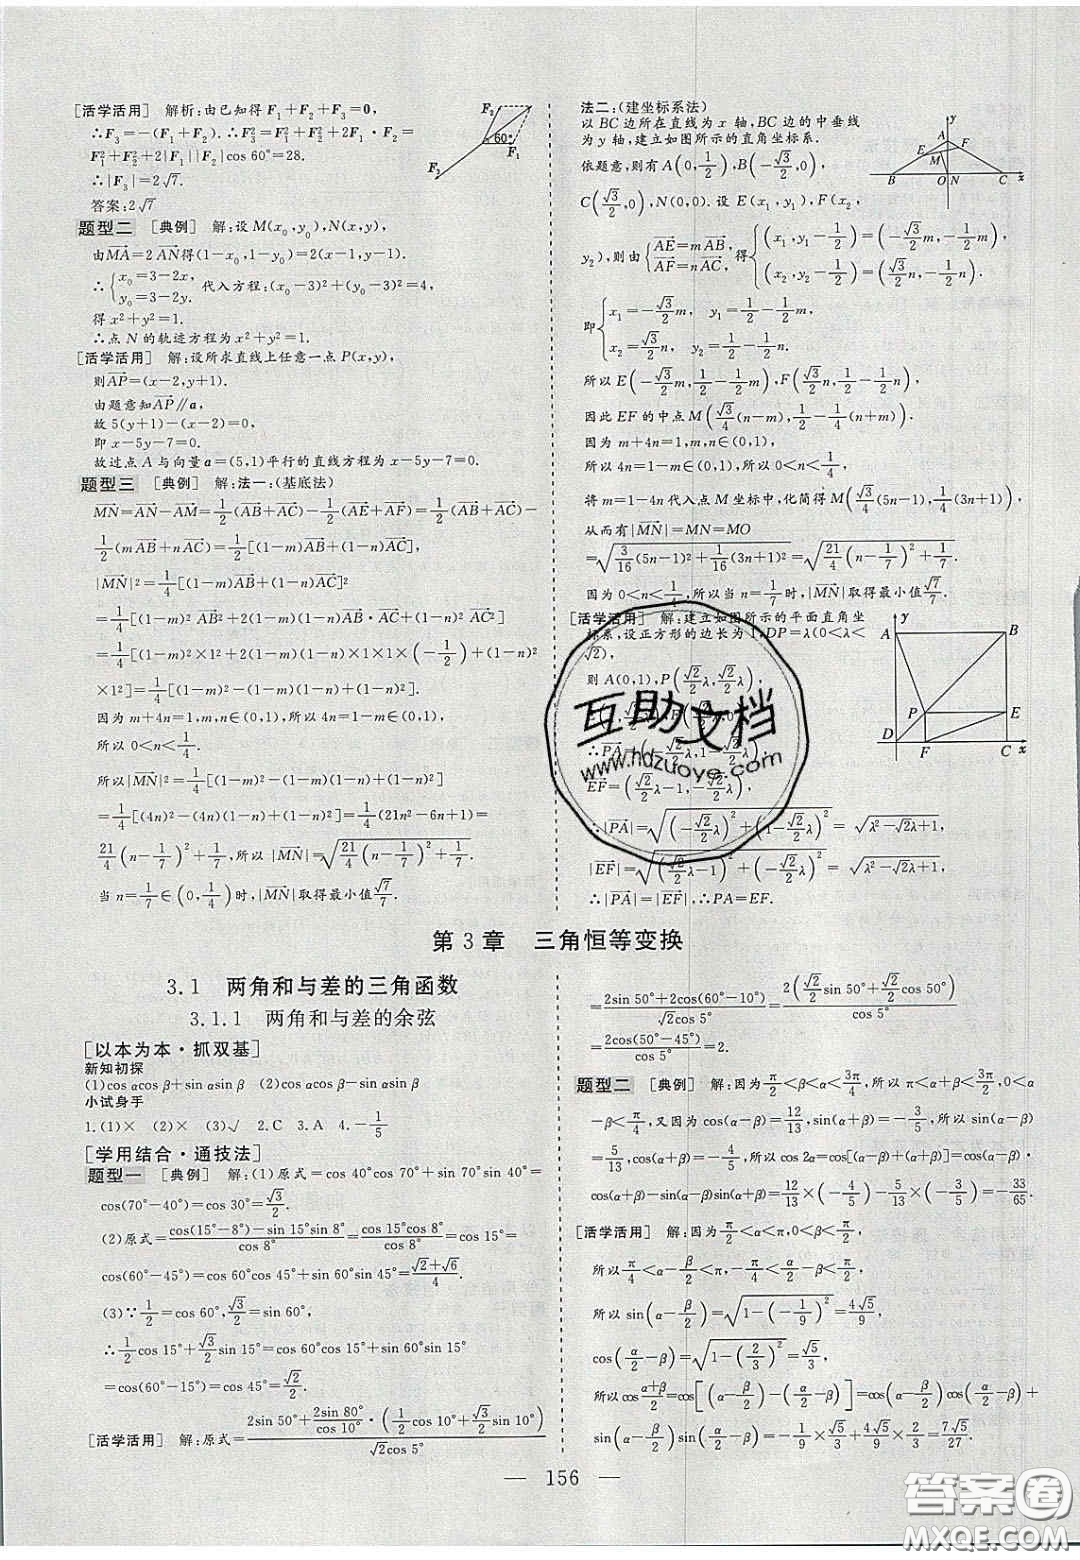 [活学活用] 解析:由已知得F₁+F₂+F₃=0,
∴F₃=-(F₁+F₂).∴F₃²=F₁²+F₂²+2F₁·F₂=
F₁²+F₂²+2|F₁||F₂|cos 60°=28.
∴|F₃|=2√7.
答案:2√7
F₂ 60° F₁ F₃
题型二 [典例] 解:设M(x₀,y₀),N(x,y),
由MA=2AN得(1-x₀,1-y₀)=2(x-1,y-1).
∴{x₀=3-2x, y₀=3-2y. 代入方程:(x₀-3)²+(y₀-3)²=4,
得x²+y²=1.
∴点N的轨迹方程为x²+y²=1.
[活学活用] 解:设所求直线上任意一点P(x,y),
则AP=(x-2,y+1).
由题意知AP∥a,
故5(y+1)-(x-2)=0,
即x-5y-7=0.
故过点A与向量a=(5,1)平行的直线方程为x-5y-7=0.
题型三 [典例] 解:法一:(基底法)
MN=AN-AM=1/2(AB+AC)-1/2(AE+AF)=1/2(AB+AC)-
1/2(mAB+nAC)=1/2[(1-m)AB+(1-n)AC],
|MN|²=1/4[(1-m)AB+(1-n)AC]²
=1/4[(1-m)²AB²+2(1-m)(1-n)AB·AC+(1-n)²AC²]
=1/4[(1-m)²×1²+2(1-m)(1-n)×1×1×(-1/2)+(1-n)²
×1²]=1/4[(1-m)²-(1-m)(1-n)+(1-n)²].
因为m+4n=1,m,n∈(0,1),所以4n=1-m∈(0,1),
所以0<n<1/4.
所以|MN|²=1/4[(1-m)²-(1-m)(1-n)+(1-n)²]
=1/4[(4n)²-(4n)(1-n)+(1-n)²]=1/4(21n²-6n+1)=
21/4(n-1/7)²+1/7,所以|MN|=√(21/4(n-1/7)²+1/7).
当n=1/7∈(0,1/4)时,|MN|取得最小值√7/7.
法二:(建坐标系法)
以BC边所在直线为x轴,BC边的中垂线
为y轴,建立如图所示的直角坐标系.
依题意,则有A(0,1/2),B(-√3/2,0),
C(√3/2,0),N(0,0).设E(x₁,y₁),F(x₂,
y₂),则由{AE=mAB, AF=nAC, 得{(x₁,y₁-1/2)=(-√3/2m,-1/2m), (x₂,y₂-1/2)=(√3/2n,-1/2n).
y A F E M B O N C x
即{x₁=-√3/2m, y₁=1/2-1/2m, x₂=√3/2n, y₂=1/2-1/2n.
所以E(-√3/2m,1/2-1/2m),F(√3/2n,1/2-1/2n).
因此EF的中点M(√3/4(n-m),1/2-1/4(n+m)).
因为m+4n=1,m,n∈(0,1),
所以4n=1-m∈(0,1),所以0<n<1/4,
将m=1-4n代入点M坐标中,化简得M(√3/4(5n-1),1/4(3n+1)),
从而有|MN|=MN=MO
=√(3/16(5n-1)²+1/16(3n+1)²)=√(21/4(n-1/7)²+1/7).
因为0<n<1/4,所以当n=1/7时,|MN|取得最小值√7/7.
[活学活用] 解:建立如图所示的平面直角坐
标系,设正方形的边长为1,DP=λ(0<λ<
√2),
则A(0,1),P(√2/2λ,√2/2λ),
∴PA=(-√2/2λ,1-√2/2λ),
EF=(√2/2λ-1,-√2/2λ),
∴|PA|=√((-√2/2λ)²+(1-√2/2λ)²)=√(λ²-√2λ+1),
|EF|=√((√2/2λ-1)²+(-√2/2λ)²)=√(λ²-√2λ+1),
∴|PA|=|EF|,∴PA=EF.
y A B P E D F C x
互助文档
www.hdzuoye.com
第3章 三角恒等变换
3.1 两角和与差的三角函数
3.1.1 两角和与差的余弦
[以本为本·抓双基]
新知初探
(1)cos αcos β+sin αsin β (2)cos αcos β-sin αsin β
小试身手
1.(1)× (2)× (3)√ 2.C 3.A 4.-1/5
[学用结合·通技法]
题型一 [典例] 解:(1)原式=cos 40°cos 70°+sin 70°sin 40°=
cos(70°-40°)=cos 30°=√3/2.
(2)原式=(cos(15°-8°)-sin 15°sin 8°)/cos 8°=cos 15°cos 8°/cos 8°=cos 15°=
cos(60°-45°)=cos 60°cos 45°+sin 60°sin 45°=(√2+√6)/4.
(3)∵1/2=cos 60°,√3/2=sin 60°,
∴1/2cos 15°+√3/2sin 15°=cos 60°cos 15°+sin 60°sin 15°
=cos(60°-15°)=cos 45°=√2/2.
[活学活用] 解:原式=(2sin 50°+2sin 80°/cos 10°·(1/2cos 10°+√3/2sin 10°))/√2cos 5°
=(2sin 50°+2cos(60°-10°))/√2cos 5°=2(√2/2sin 50°+√2/2cos 50°)/cos 5°
=2cos(50°-45°)/cos 5°=2.
题型二 [典例] 解:因为π/2<β<α<3π/4,所以π<α+β<3π/2,0<α
-β<π/4,又因为cos(α-β)=12/13,sin(α+β)=-3/5,所以sin(α-β)
=5/13,cos(α+β)=-4/5,所以cos 2α=cos[(α-β)+(α+β)]=
cos(α+β)cos(α-β)-sin(α-β)sin(α+β)=12/13×(-4/5)-5/13×(-3/5)=-33/65.
[活学活用] 解:因为π/2<α<π,0<β<π/2,
所以π/4<α-β/2<π,-π/4<α/2-β<π/2,
所以sin(α-β/2)=√(1-(-1/9)²)=4√5/9,
cos(α/2-β)=√(1-(2/3)²)=√5/3,
所以cos(α+β)/2=cos[(α-β/2)-(α/2-β)]=cos(α-β/2)cos(α/2-β)+
sin(α-β/2)sin(α/2-β)=-1/9×√5/3+4√5/9×2/3=7√5/27.
— 156 —
答案圈
MXQE.COM